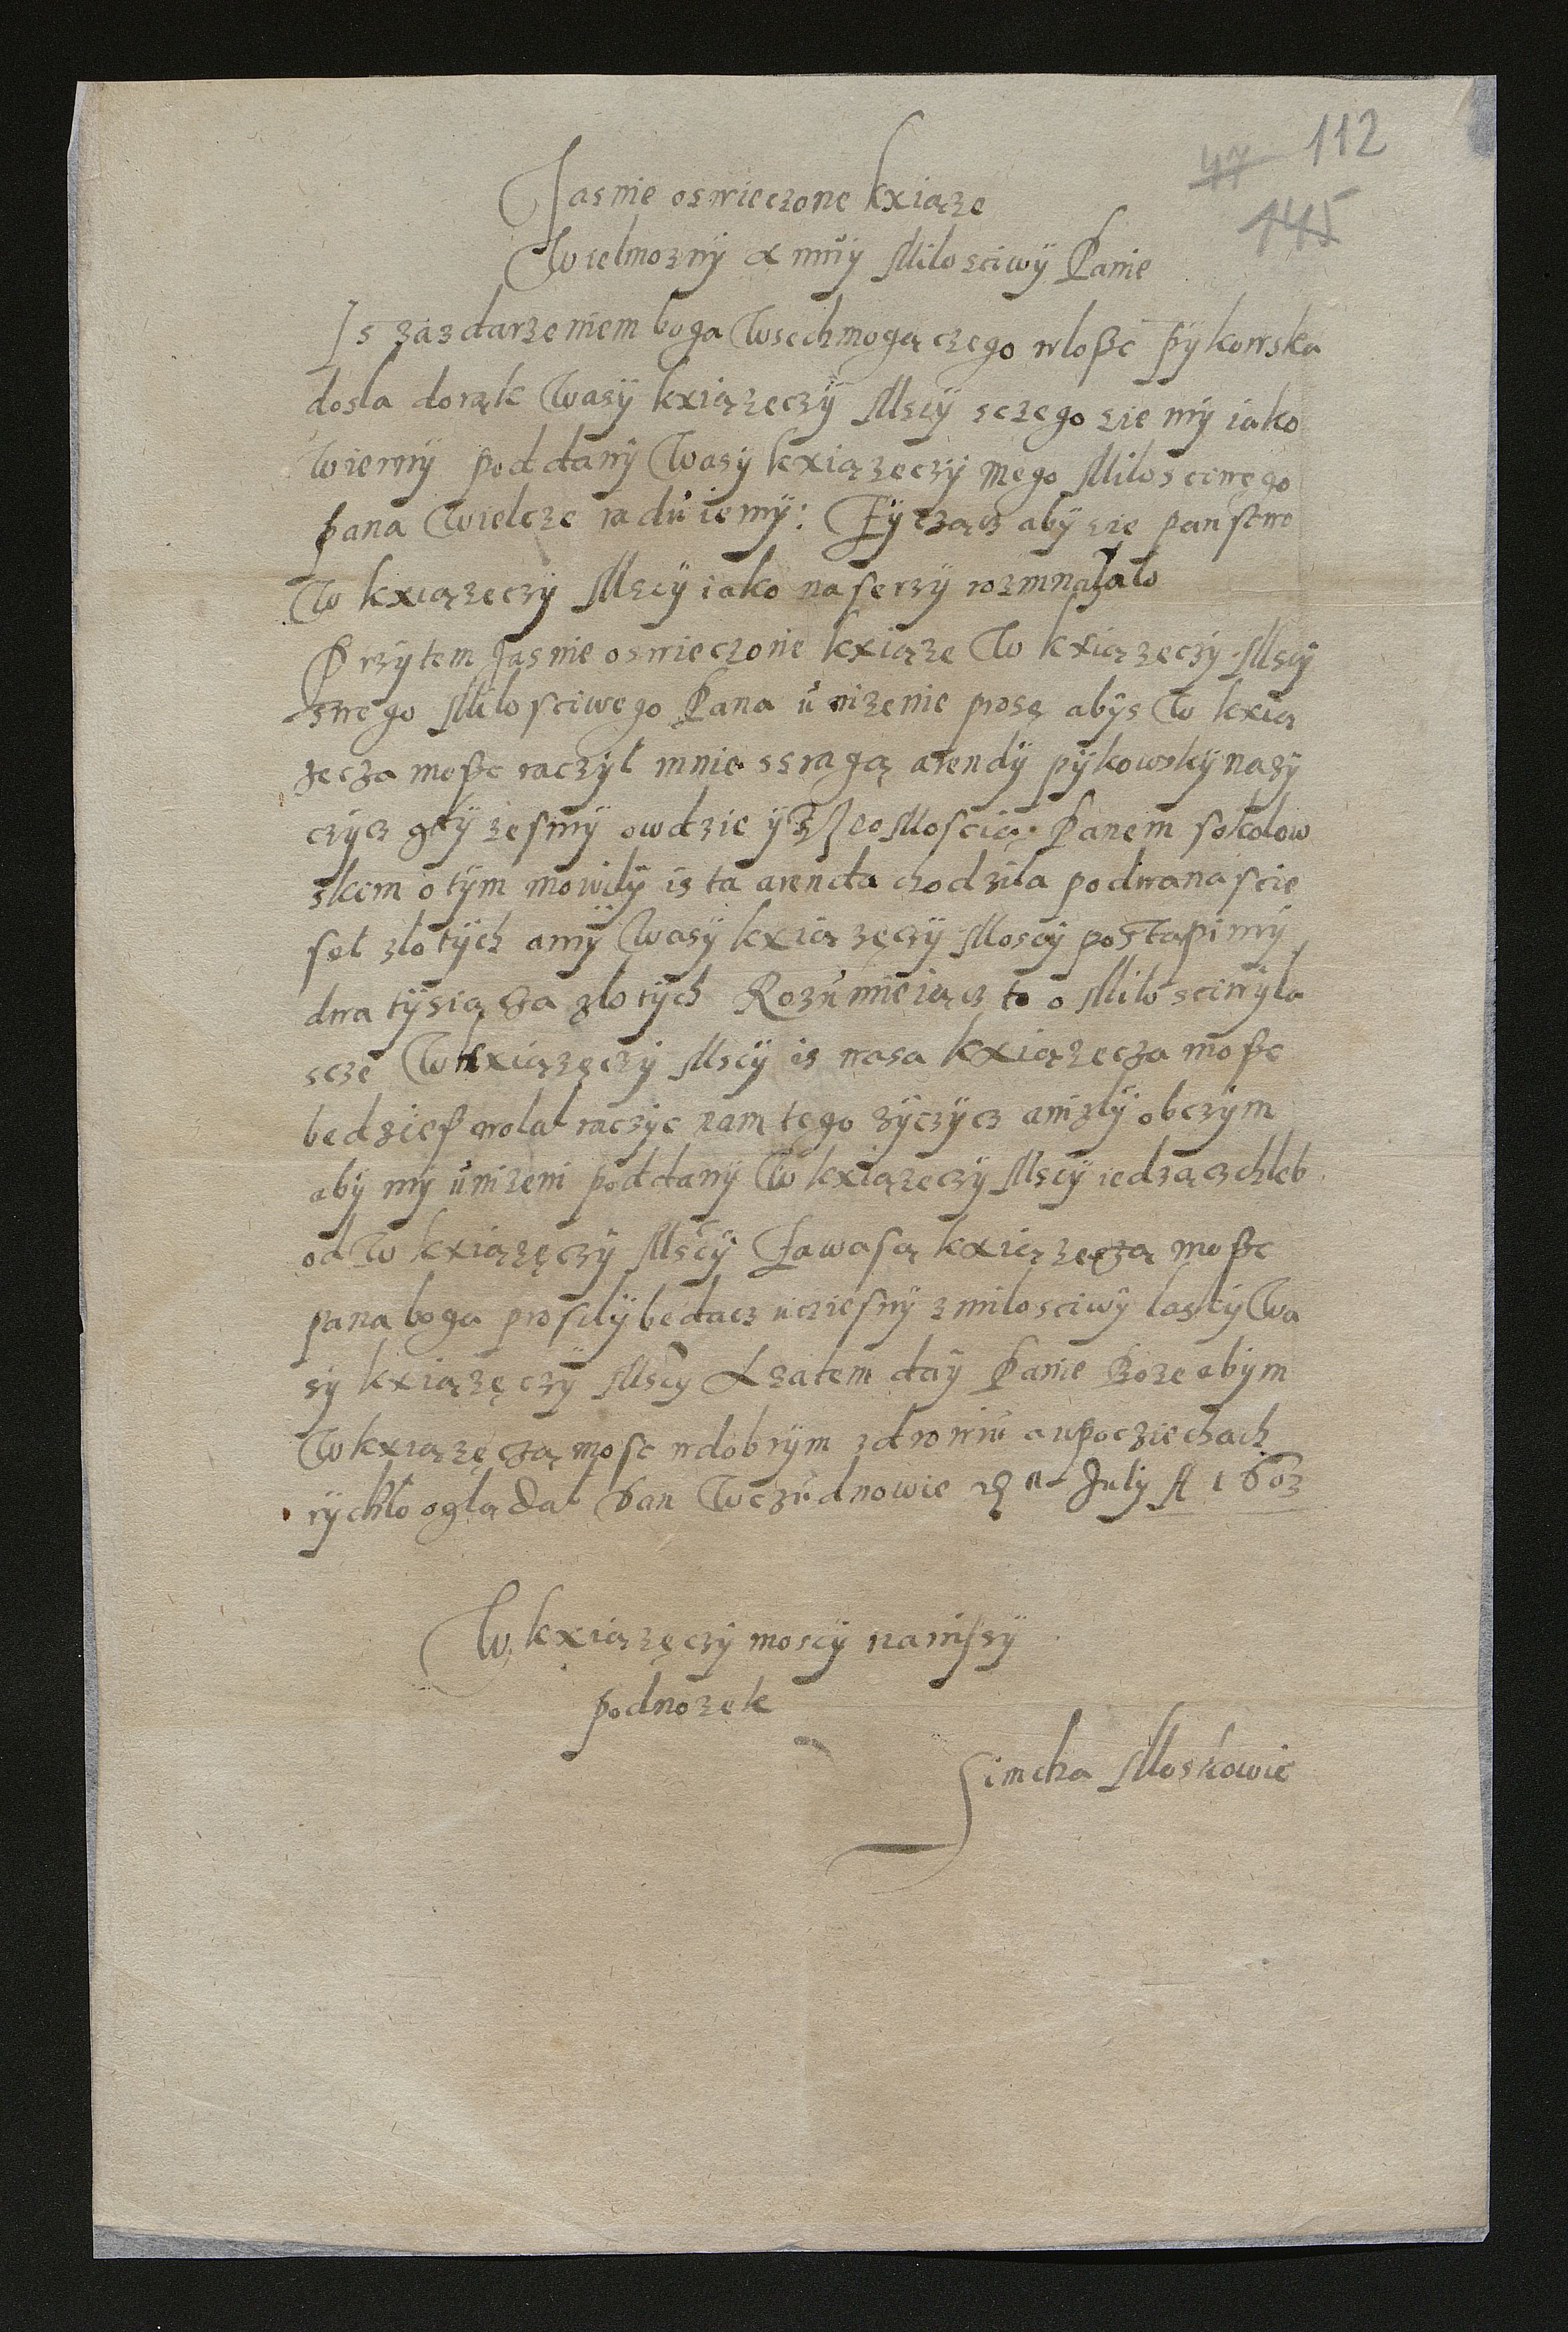 112
47
145
Jasnie oswieczone kxiąze
Wielmozny a mny Milosciwy Panie
Is zazdarzeniem boga Wsechmogączego wloßc pykowska
dosla dorąk Wasÿ kxiązeczÿ Mscÿ sczego sie mÿ iako
Wiernÿ poddanÿ Wasÿ kxiązeczÿ mego Milosciwego
pana Wielcze raduiemÿ: Zÿczącz abÿ sie panstwo
W kxiązeczÿ Mscÿ iako naserzÿ rozmnazalo
Przÿtem Jasnie oswieczonie kxiąze W kxiązeczÿ Mscÿ
swego Milosciwego Pana unizenie proszę abÿs W kxią
zecza moßc raczÿl mnie ssragą arendÿ pÿkowskÿ nazÿ
czÿcz gdÿ zesmÿ owdzie ÿ z Jeo Moscią Panem sokolow
skem o tÿm mowilÿ is ta arenda chodzila podwanascie
set zlotÿch amÿ Wasÿ kxiązęczÿ Moscÿ postąpimÿ
dwa tÿsiącza zlotÿch Rozumieiącz to o Milosciwÿ la
scze W kxiązęczÿ Mscÿ is wasa kxiązecza moßc
bedzies wolal raczÿc nam tego zÿczÿcz anizlÿ obczÿm
abÿ mÿ unizeni poddanÿ W kxiązeczÿ Mscÿ iedzącz chleb
od W kxiązęczÿ Mscÿ Zawasą kxiązeczą moßc
pana boga prosilÿ bedacz ucziesnÿ z milosciwÿ laskÿ Wa
sÿ kxiązęczÿ Mscÿ A zatem daÿ Panie Boze abÿm
W kxiązęczą mosc wdobrÿm zdrowiu a wpocziechach
rÿchlo oglądal Dan Wczudnowie Julÿ A 1603
W kxiązęczÿ moscÿ nanissÿ
podnozek
Simcha Moskowic